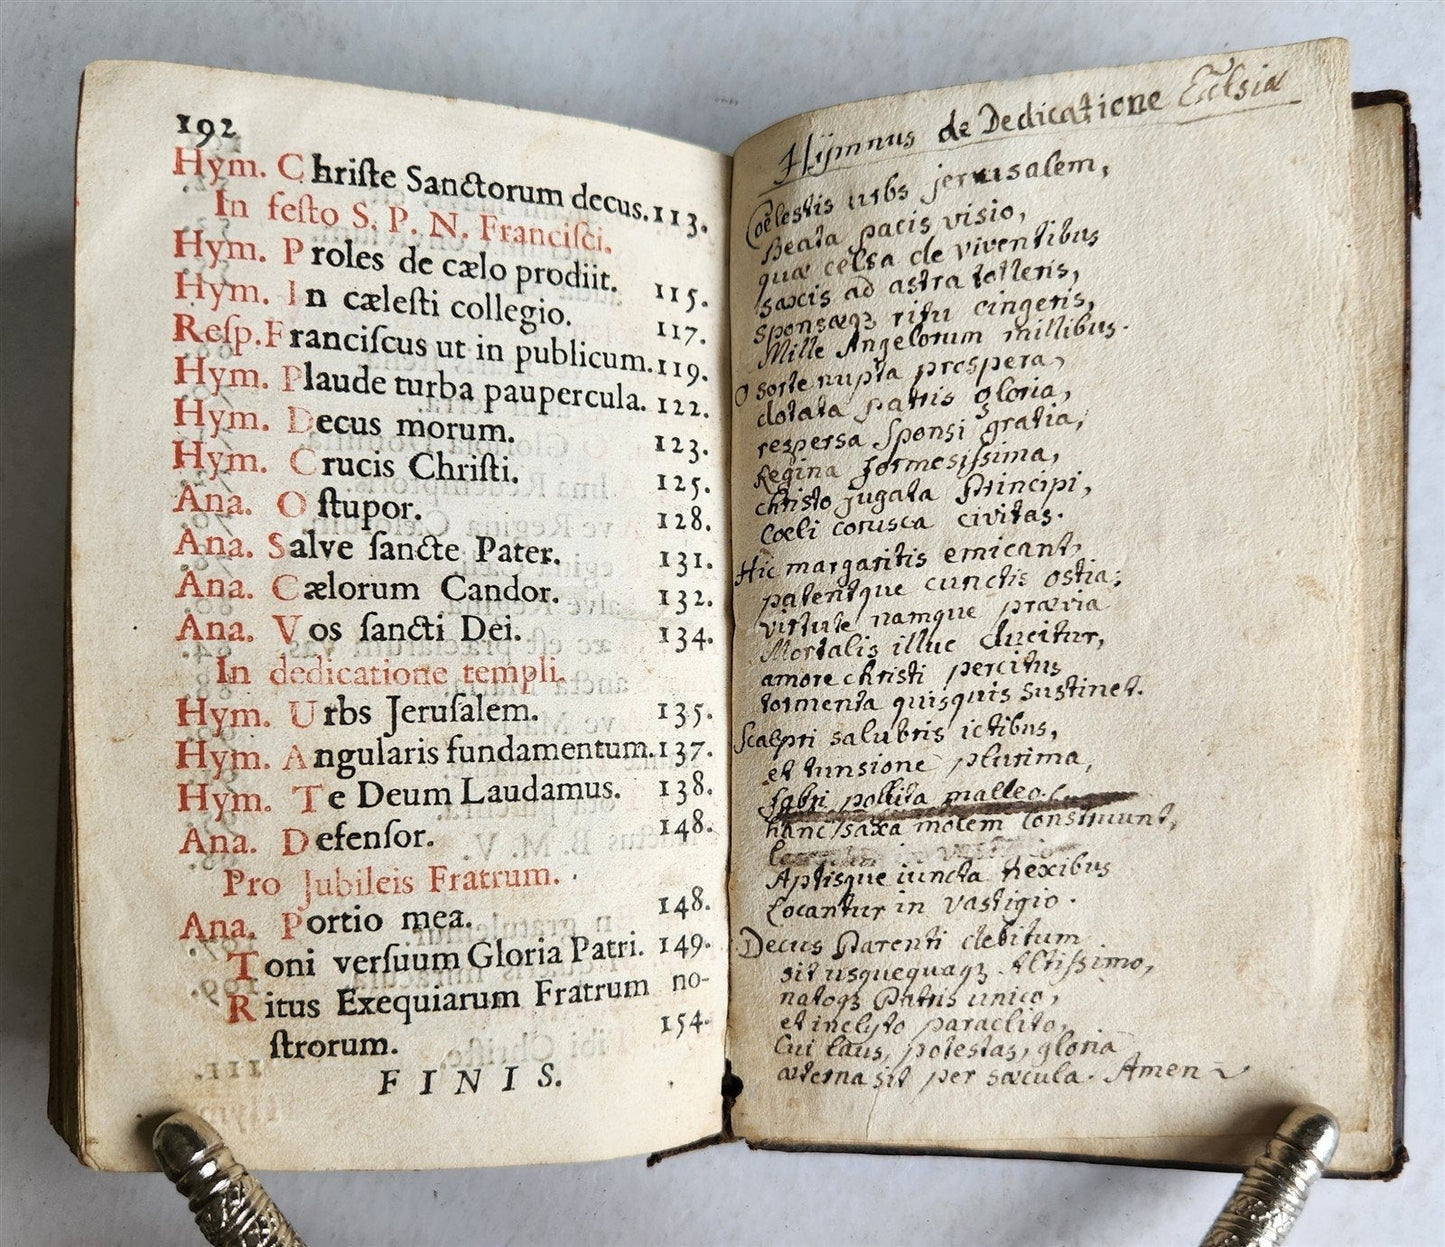 192
Hym. Chriſte Sanctorum decus. 113.
In feſto S. P. N. Franciſci.
Hym. Proles de cælo prodiit. 115.
Hym. In cæleſti collegio. 117.
Reſp. Franciſcus ut in publicum. 119.
Hym. Plaude turba paupercula. 122.
Hym. Decus morum. 123.
Hym. Crucis Chriſti. 125.
Ana. O ſtupor. 128.
Ana. Salve ſancte Pater. 131.
Ana. Cælorum Candor. 132.
Ana. Vos ſancti Dei. 134.
In dedicatione templi.
Hym. Urbs Jeruſalem. 135.
Hym. Angularis fundamentum. 137.
Hym. Te Deum Laudamus. 138.
Ana. Defenſor. 148.
Pro Jubileis Fratrum.
Ana. Portio mea. 148.
Toni verſuum Gloria Patri. 149.
Ritus Exequiarum Fratrum no-
ſtrorum. 154.
FINIS.
Hymnus de Dedicatione Ecclsiæ
Coelestis urbs jerusalem,
Beata pacis visio,
quæ celsa de viventibus
saxis ad astra tolleris,
sponsæqꝫ ritu cingeris,
Mille Angelorum millibus.
O sorte nupta prospera,
dotata patris gloria,
respersa Sponsi gratia,
Regina formosissima,
christo jugata Principi,
Coeli corusca civitas.
Hic margaritis emicant,
patentque cunctis ostia;
virtute namque prævia
Mortalis illuc ducitur,
amore christi percitus
tormenta quisquis sustinet.
Scalpri salubris ictibus,
et tunsione plurima,
fabri polita malleo.
hanc saxa molem construunt,
Aptisque iuncta nexibus
Locantur in vastigio.
Decus Parenti debitum
sit usquequaqꝫ Altissimo,
natoqꝫ Patris unico,
et inclyto paraclito,
Cui laus, potestas, gloria
æterna sit per sæcula. Amen